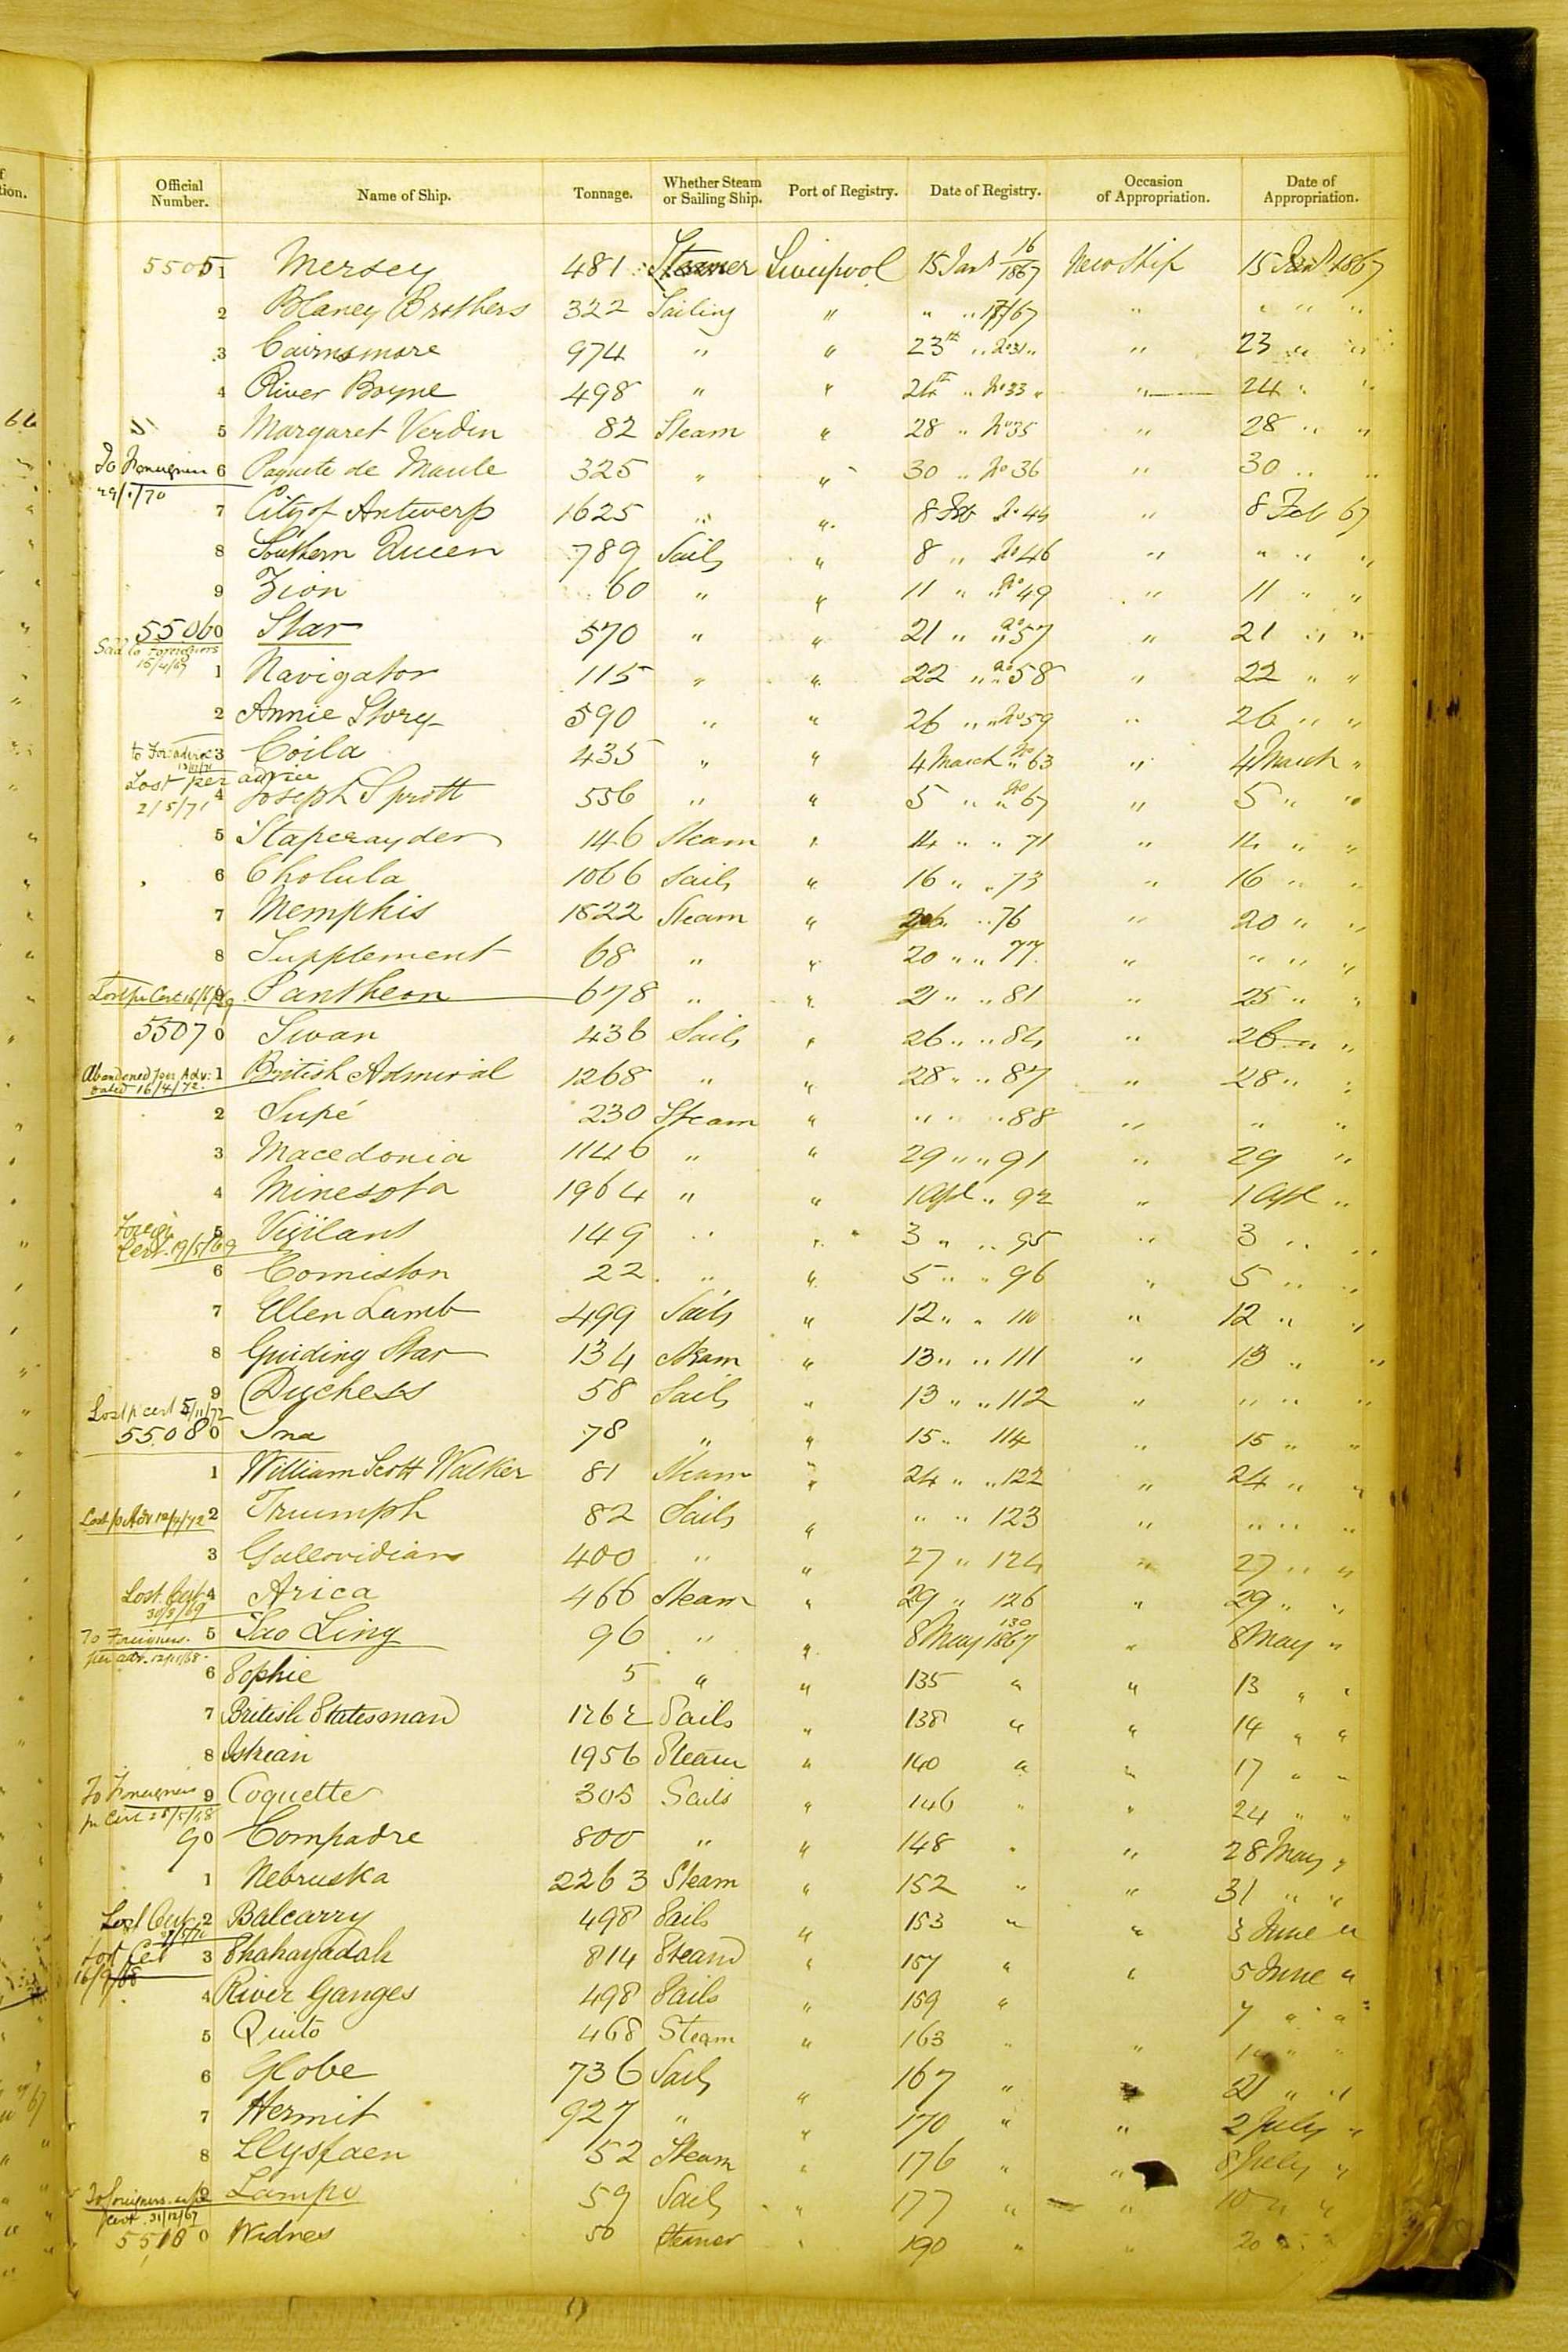 Official Number. Name of Ship. Tonnage. Whether Steam or Sailing Ship. Port of Registry. Date of Registry. Occasion of Appropriation. Date of Appropriation.
55051 Mersey 481 Steamer Liverpool 15 Jany 16/1867 New Ship 15 Jany 1867
2 Blaney Brothers 322 Sailing " " " 17/67 " " " "
3 Cairnsmore 974 " " 23rd " No 31 " " 23 " "
4 River Boyne 498 " " 24th " No 33 " " 24 " "
5 Margaret Verdin 82 Steam " 28 " No 35 " 28 " "
To Foreigners 6 Paquete de Maule 325 " " 30 " No 36 " 30 " "
29/1/70
7 City of Antwerp 1625 " " 8 Feb No 44 " 8 Feb 67
8 Southern Queen 789 Sails " 8 " No 46 " " " "
9 Zion 60 " " 11 " " No 49 " 11 " "
55060 Star 570 " " 21 " " No 57 " 21 " "
Sold to Foreigners
15/4/69
1 Navigator 115 " " 22 " " No 58 " 22 " "
2 Annie Story 590 " " 26 " " No 59 " 26 " "
3 Coila 435 " " 4 March No 63 " 4 March "
Lost per advice
2/5/71 4 Joseph Sprott 556 " " 5 " " No 67 " 5 " "
5 Staperayder 146 Steam " 14 " " 71 " 14 " "
6 Cholula 1066 Sails " 16 " " 73 " 16 " "
7 Memphis 1822 Steam " " 76 " 20 " "
8 Supplement 68 " " 20 " " 77 " " " "
Lost per Cert 16/6/69 9 Pantheon 678 " " 21 " " 81 " 25 " "
55070 Swan 436 Sails " 26 " " 84 " 26 " "
Abandoned per Adv: 1 British Admiral 1268 " " 28 " " 87 " 28 " "
dated 16/4/72
2 Supé 230 Steam " " " " 88 " " "
3 Macedonia 1146 " " 29 " " 91 " 29 "
4 Minesota 1964 " " 1 Apl " 92 " 1 Apl "
Foreign 5 Vigilant 149 " " 3 " " 95 " 3 " "
Cert. 19/5/69
6 Comiston 22 " " 5 " " 96 " 5 " "
7 Ellen Lamb 499 Sails " 12 " " 110 " 12 " "
8 Guiding Star 134 Steam " 13 " " 111 " 13 " "
9 Duchess 58 Sails " 13 " " 112 " " " "
Lost p cert 5/11/72
55080 Ina 78 " " 15 " 114 " 15 " "
1 William Scott Walker 81 Steam " 24 " " 122 " 24 " "
Lost p Adv 12/4/72 2 Triumph 82 Sails " " " 123 " " " "
3 Gallovidian 400 " " 27 " 124 " 27 " "
Lost Cert 4 Arica 466 Steam " 29 " 126 " 29 " "
30/8/69
To Foreigners 5 Tao Ling 96 " " 8 May 130 1867 " 8 May "
per adv. 12/11/68
6 Sophie 5 " " 135 " " 13 " "
7 British Statesman 1262 Sails " 138 " " 14 " "
8 Istrian 1956 Steam " 140 " " 17 " "
To Foreigners 9 Coquette 305 Sails " 146 " " 24 " "
pr Cert 28/5/68
90 Compadre 800 " " 148 " " 28 May "
1 Nebruska 2263 Steam " 152 " " 31 " "
Lost Cert 2 Balcarry 498 Sails " 153 " " 3 June "
Lost Cert 3 Shahayadah 814 Steam " 157 " " 5 June "
16/9/68
4 River Ganges 498 Sails " 159 " 7 " "
5 Quito 468 Steam " 163 " " " "
6 Globe 736 Sails " 167 " " 21 " "
7 Hermit 927 " " 170 " " 2 July "
8 Llysfaen 52 Steam " 176 " " 8 July "
To foreigners 9 Lampo 59 Sails " 177 " " 10 " "
cert. 31/12/67
55100 Widnes 50 Steamer " 190 " " 20